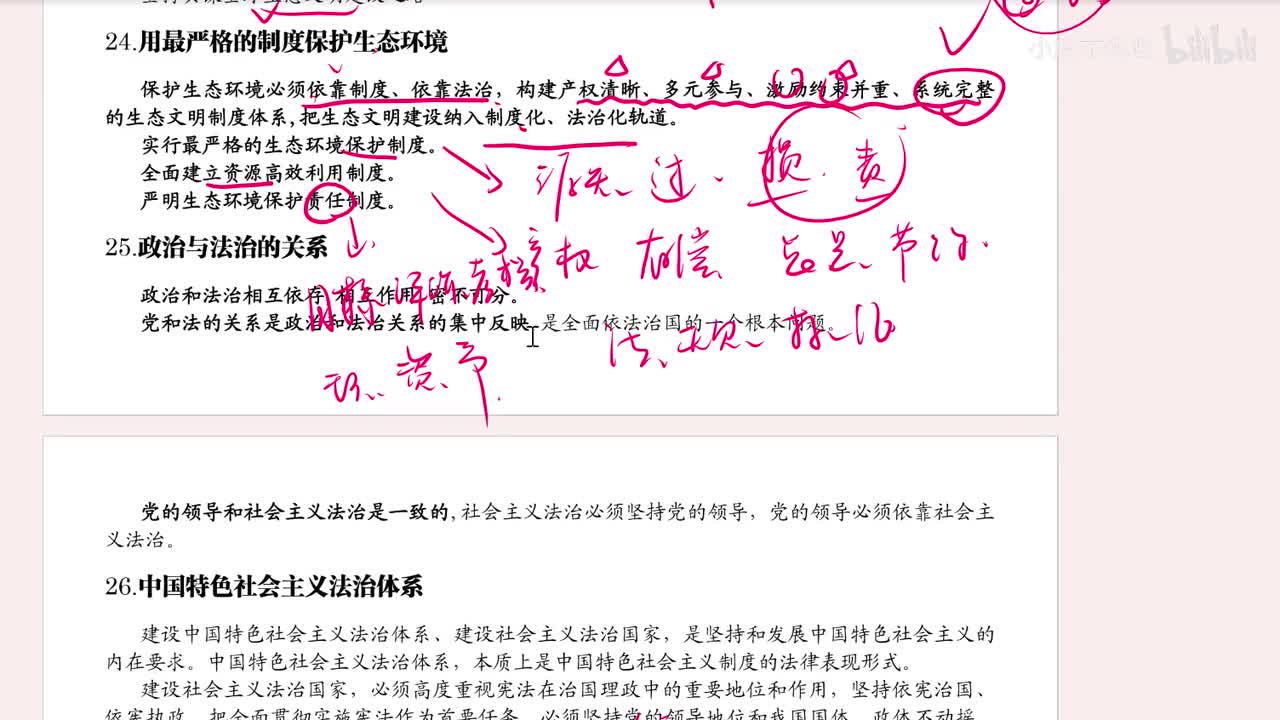 24.用最严格的制度保护生态环境
bilibili
保护生态环境必须依靠制度、依靠法治，构建产权清晰、多元参与、激励约束并重、系统完整
的生态文明制度体系，把生态文明建设纳入制度化、法治化轨道。
实行最严格的生态环境保护制度。
全面建立资源高效利用制度。
严明生态环境保护责任制度。
源头、过、损、责
25.政治与法治的关系
产权 有偿 总量 节约
政治和法治相互依存、相互作用、密不可分。
党和法的关系是政治和法治关系的集中反映，是全面依法治国的一个根本问题。
党的领导和社会主义法治是一致的，社会主义法治必须坚持党的领导，党的领导必须依靠社会主
义法治。
26.中国特色社会主义法治体系
建设中国特色社会主义法治体系、建设社会主义法治国家，是坚持和发展中国特色社会主义的
内在要求。中国特色社会主义法治体系，本质上是中国特色社会主义制度的法律表现形式。
建设社会主义法治国家，必须高度重视宪法在治国理政中的重要地位和作用，坚持依宪治国、
依宪执政，把全面贯彻实施宪法作为首要任务，必须坚持党的领导地位和我国国体、政体不动摇，